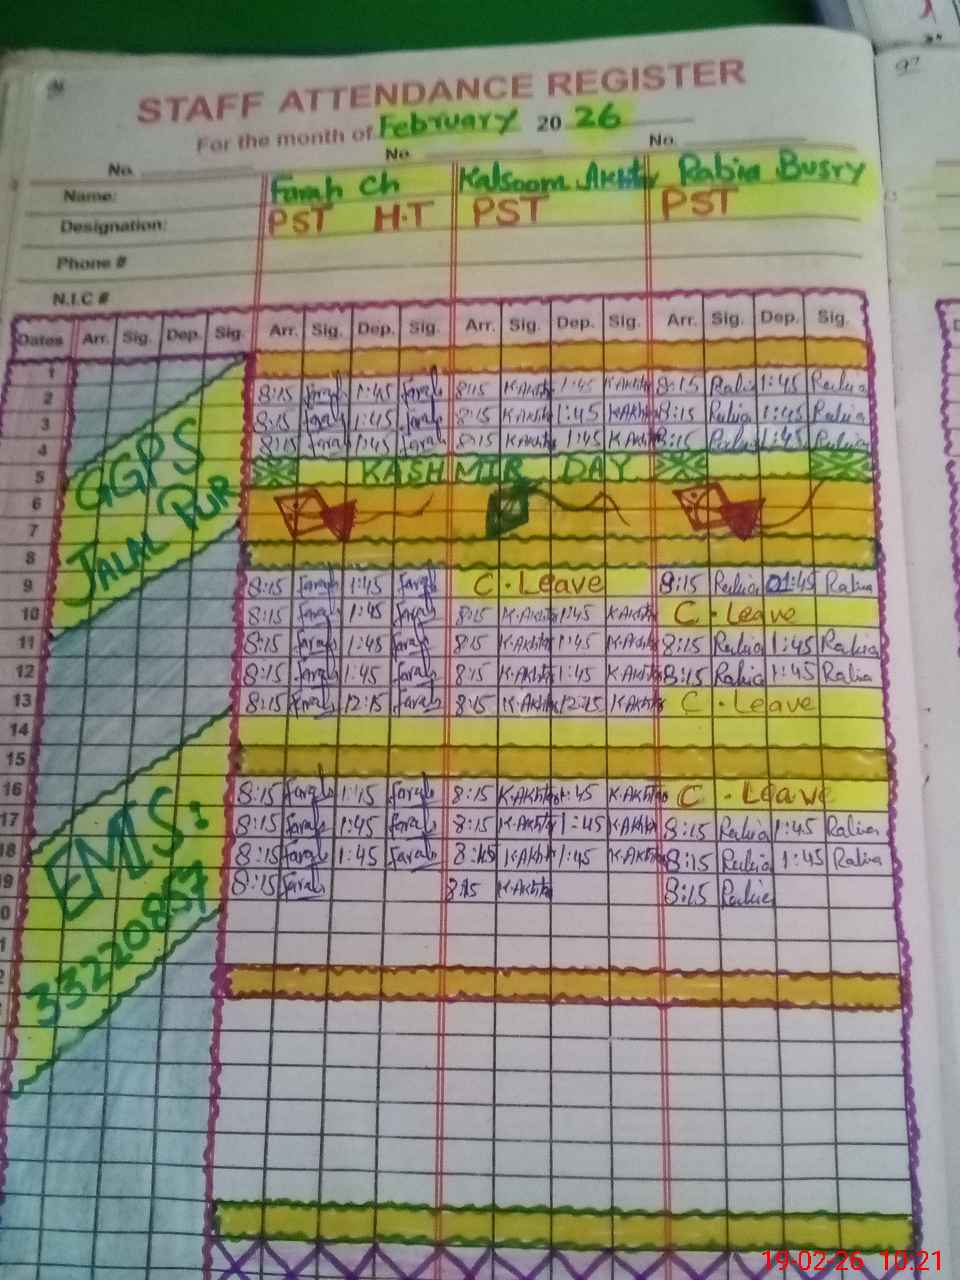 STAFF ATTENDANCE REGISTER
For the month of February 20 26
No. No. No.
Name: Farah Ch Kalsoom Akhtar Rabia Busry
Designation: PST H.T PST PST
Phone #
N.I.C #
Dates Arr. Sig. Dep. Sig. Arr. Sig. Dep. Sig. Arr. Sig. Dep. Sig. Arr. Sig. Dep. Sig.
1
2 8:15 Farah 1:45 Farah 8:15 K.Akhtar 1:45 K.Akhtar 8:15 Rabia 1:45 Rabia
3 8:15 Farah 1:45 Farah 8:15 K.Akhtar 1:45 K.Akhtar 8:15 Rabia 1:45 Rabia
4 8:15 Farah 1:45 Farah 8:15 K.Akhtar 1:45 K.Akhtar 8:15 Rabia 1:45 Rabia
5 KASHMIR DAY
6
7
8
GGPS
JALAL PUR
9 8:15 Farah 1:45 Farah C.Leave 8:15 Rabia 01:45 Rabia
10 8:15 Farah 1:45 Farah 8:15 K.Akhtar 1:45 K.Akhtar C.Leave
11 8:15 Farah 1:45 Farah 8:15 K.Akhtar 1:45 K.Akhtar 8:15 Rabia 1:45 Rabia
12 8:15 Farah 1:45 Farah 8:15 K.Akhtar 1:45 K.Akhtar 8:15 Rabia 1:45 Rabia
13 8:15 Farah 12:15 Farah 8:15 K.Akhtar 12:15 K.Akhtar C.Leave
14
15
16 8:15 Farah 1:15 Farah 8:15 K.Akhtar 1:45 K.Akhtar C.Leave
17 8:15 Farah 1:45 Farah 8:15 K.Akhtar 1:45 K.Akhtar 8:15 Rabia 1:45 Rabia
18 8:15 Farah 1:45 Farah 8:15 K.Akhtar 1:45 K.Akhtar 8:15 Rabia 1:45 Rabia
9 8:15 Farah 8:15 K.Akhtar 8:15 Rabia
0
1
2
EMIS:
33220857
19-02-26 10:21